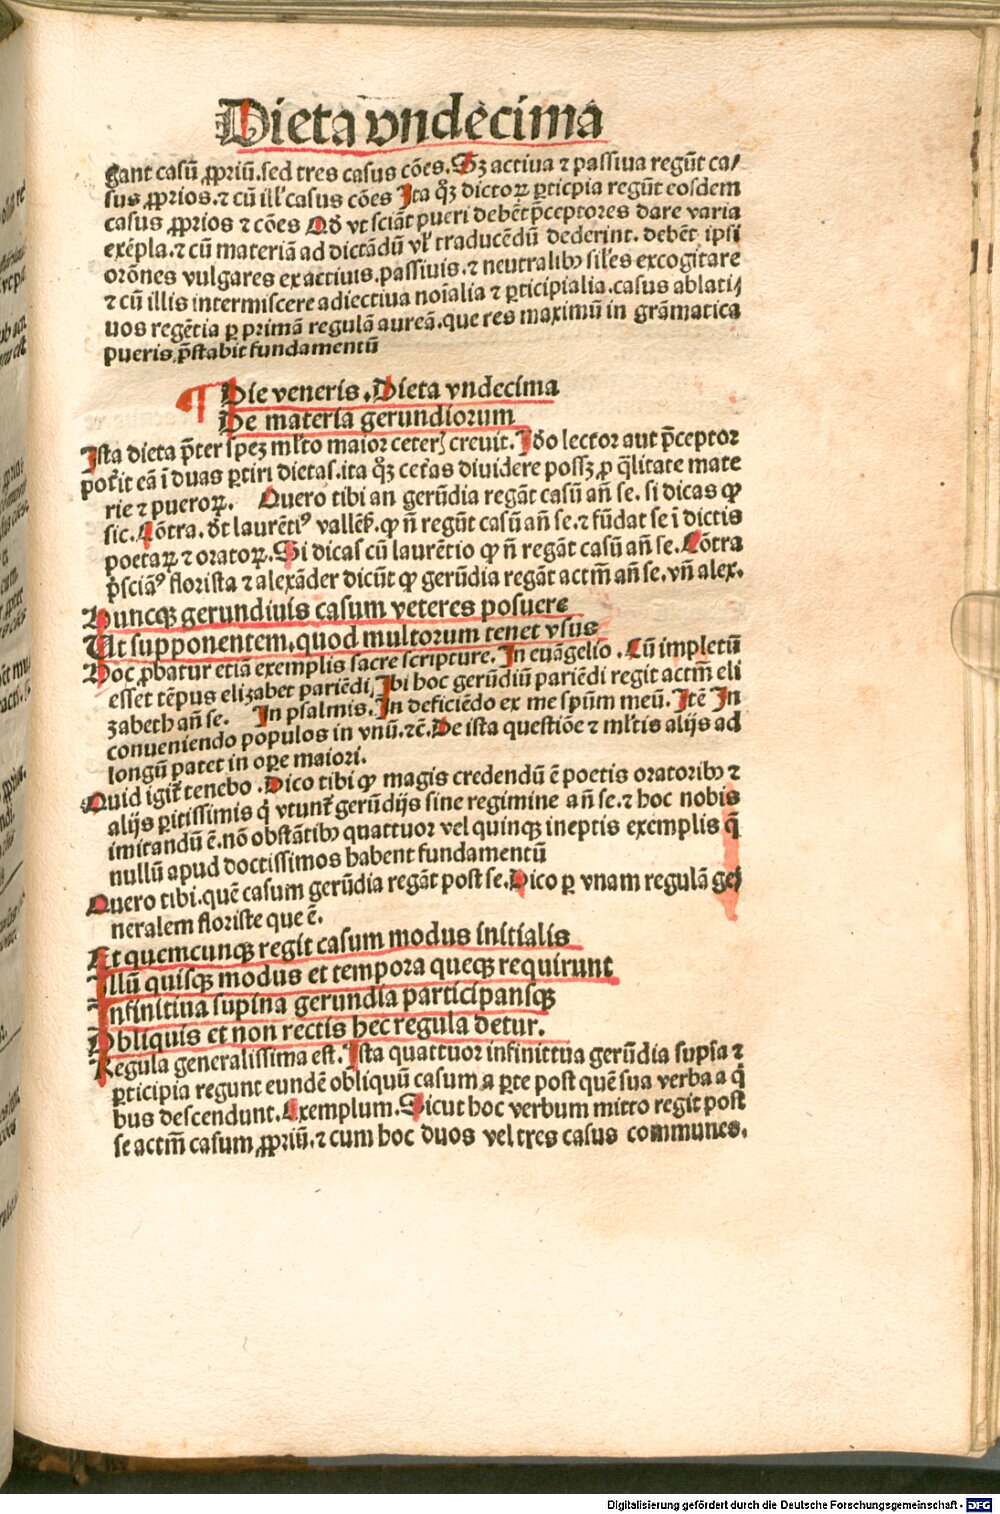 Dieta vndecima
gant casū ꝓpriū.sed tres casus cōes.Sꝫ actiua ⁊ passiua regūt ca/
sus ꝓprios.⁊ cū ill' casus cōes Ita qꝫ dictoꝝ ꝑticpia regūt eosdem
casus ꝓprios ⁊ cōes Qđ vt sciāt pueri debēt p̄ceptores dare varia
exēpla.⁊ cū materiā ad dictādū vl' traducēdū dederint. debēt ipsi
orōnes vulgares ex actiuis.passiuis.⁊ neutralibꝰ sil'es excogitare
⁊ cū illis intermiscere adiectiua noīalia ⁊ ꝑticipialia.casus ablati/
uos regētia ꝑ primā regulā aureā.que res maximū in grāmatica
pueris p̄stabit fundamentū
¶ Die veneris.Dieta vndecima
De materia gerundiorum
Ista dieta p̄ter spez ml'to maior ceterꝭ creuit.Iđo lector aut p̄ceptor
pot'it eā ī duas ꝑtiri dietas.ita qꝫ cet'as diuidere possꝫ ꝓ q̄litate mate
rie ⁊ pueroꝝ. Quero tibi an gerūdia regāt casū añ se. si dicas ꝙ
sic.Cōtra. đt laurētiꝰ vallēs. ꝙ ñ regūt casū añ se.⁊ fūdat se ī dictis
poetaꝝ ⁊ oratoꝝ.Si dicas cū laurētio ꝙ ñ regāt casū añ se.Cōtra
p̄sciāꝰ florista ⁊ alexāder dicūt ꝙ gerūdia regāt actm̄ añ se.vñ alex.
Huncqꝫ gerundiuis casum veteres posuere
Ut supponentem.quod multorum tenet vsus
Hoc ꝓbatur etiā exemplis sacre scripture.In euāgelio.Cū impletū
esset tēpus elizabet pariēdi, Ibi hoc gerūdiū pariēdi regit actm̄ eli
zabeth añ se. In psalmis.In deficiēdo ex me spūm meū.Itē In
conueniendo populos in vnū.⁊c̄.De ista questiōe ⁊ ml'tis alijs ad
longū patet in oꝑe maiori.
Quid igit' tenebo.Dico tibi ꝙ magis credendū ē poetis oratoribꝰ ⁊
alijs ꝑitissimis qͥ vtunt' gerūdijs sine regimine añ se.⁊ hoc nobis
imitandū ē.nō obstātibꝰ quattuor vel quinqꝫ ineptis exemplis q̄
nullū apud doctissimos habent fundamentū
Quero tibi.quē casum gerūdia regāt post se.Dico ꝑ vnam regulā ge/
neralem floriste que ē.
Et quemcunqꝫ regit casum modus initialis
Illū quisqꝫ modus et tempora queqꝫ requirunt
Infinitiua supina gerundia participansqꝫ
Obliquis et non rectis hec regula detur.
Regula generalissima est.Ista quattuor infinittua gerūdia supīa ⁊
ꝑticipia regunt eundē obliquū casum a ꝑte post quē sua verba a qͥ
bus descendunt.Exemplum.Sicut hoc verbum mitto regit post
se actm̄ casum ꝓpriū.⁊ cum hoc duos vel tres casus communes.
Digitalisierung gefördert durch die Deutsche Forschungsgemeinschaft - DFG